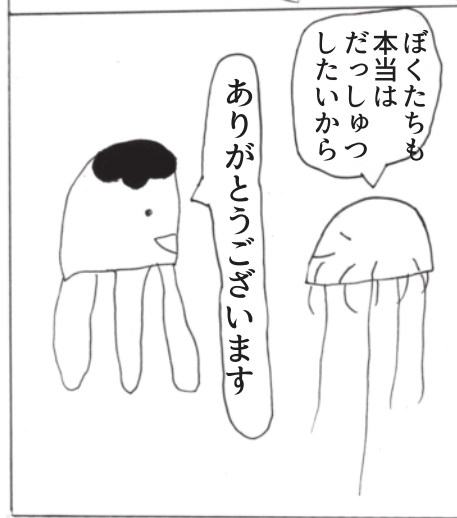 ぼくたちも
本当は
だっしゅつ
したいから
ありがとうございます